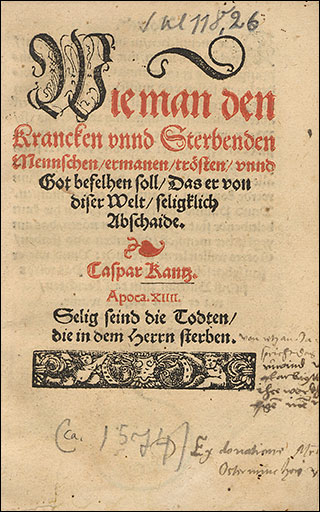 Wie man den
Krancken vnnd Sterbenden
Mennschen / ermanen / trösten / vnnd
Got befelhen soll / Das er von
diser Welt / seligklich
Abschaide.
Caspar Kantz.
Apoca. XIIII.
Selig seind die Todten /
die in dem Herrn sterben.
[ca. 1574]
Ex donatione